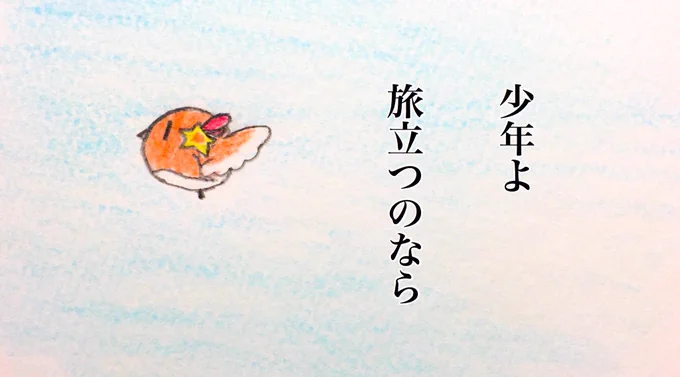 少年よ
旅立つのなら